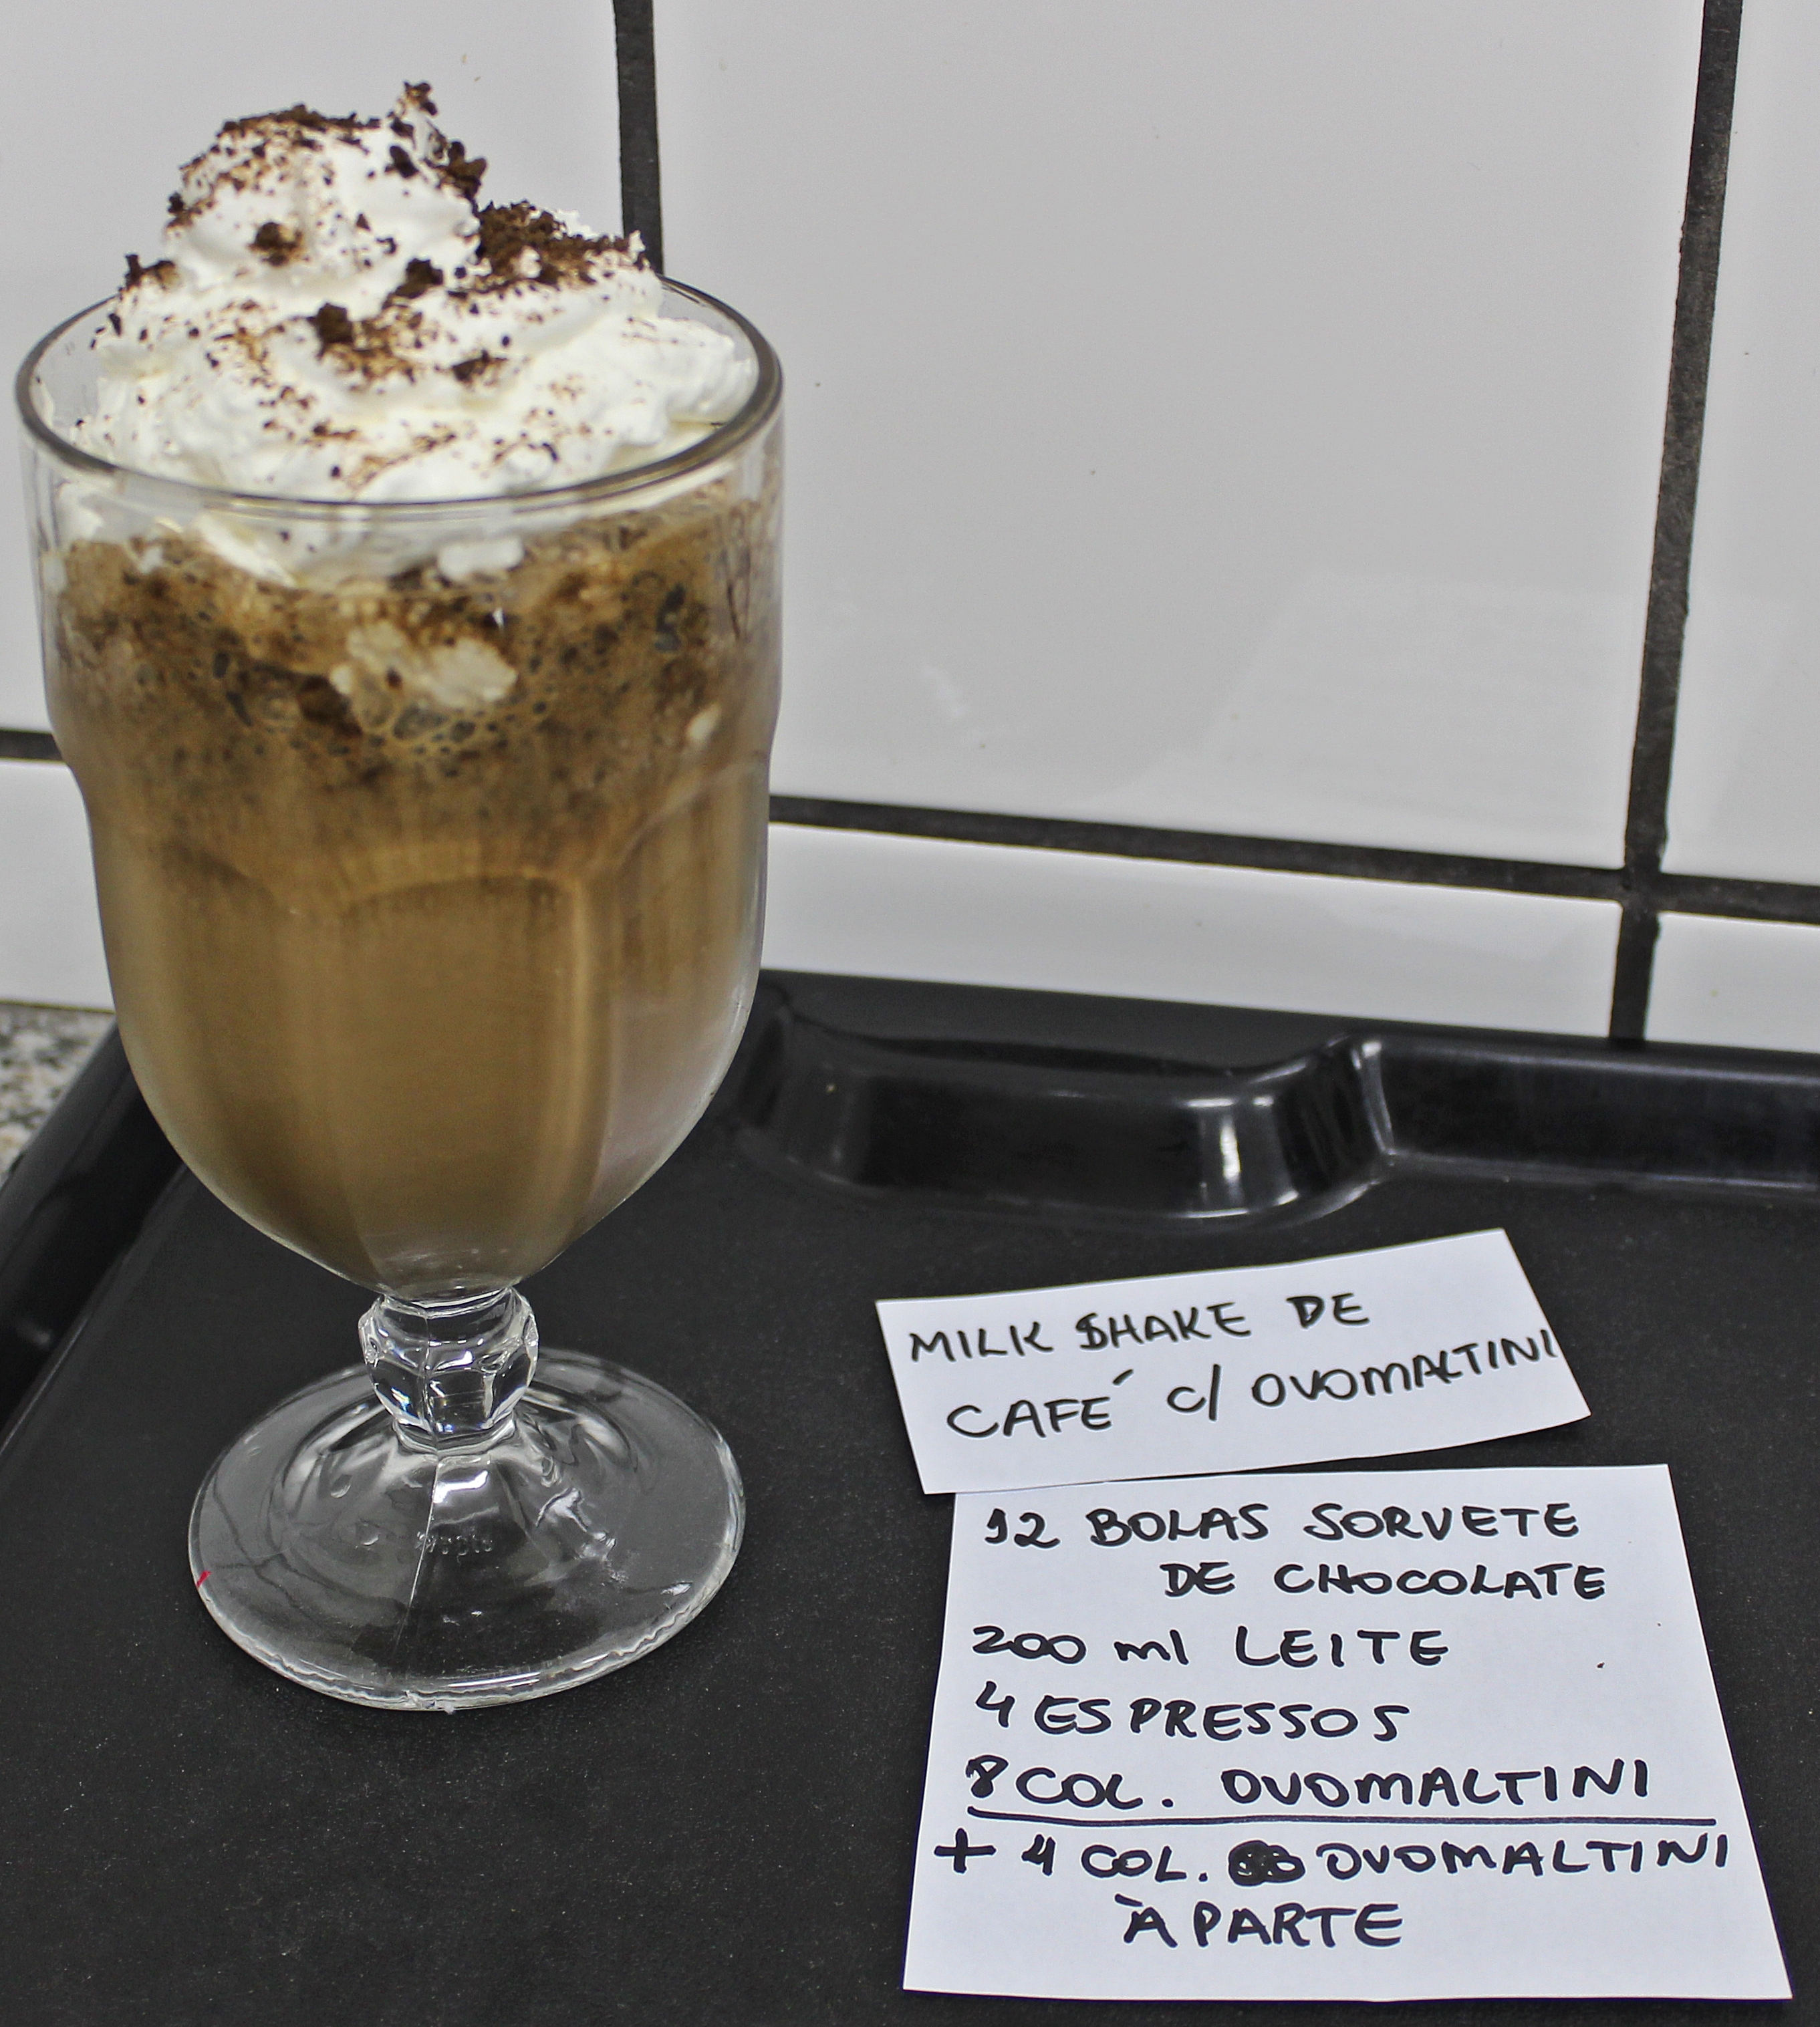 MILK SHAKE DE
CAFÉ C/ OVOMALTINI
12 BOLAS SORVETE
DE CHOCOLATE
200 ml LEITE
4 ESPRESSOS
8 COL. OVOMALTINI
+ 4 COL. OVOMALTINI
À PARTE